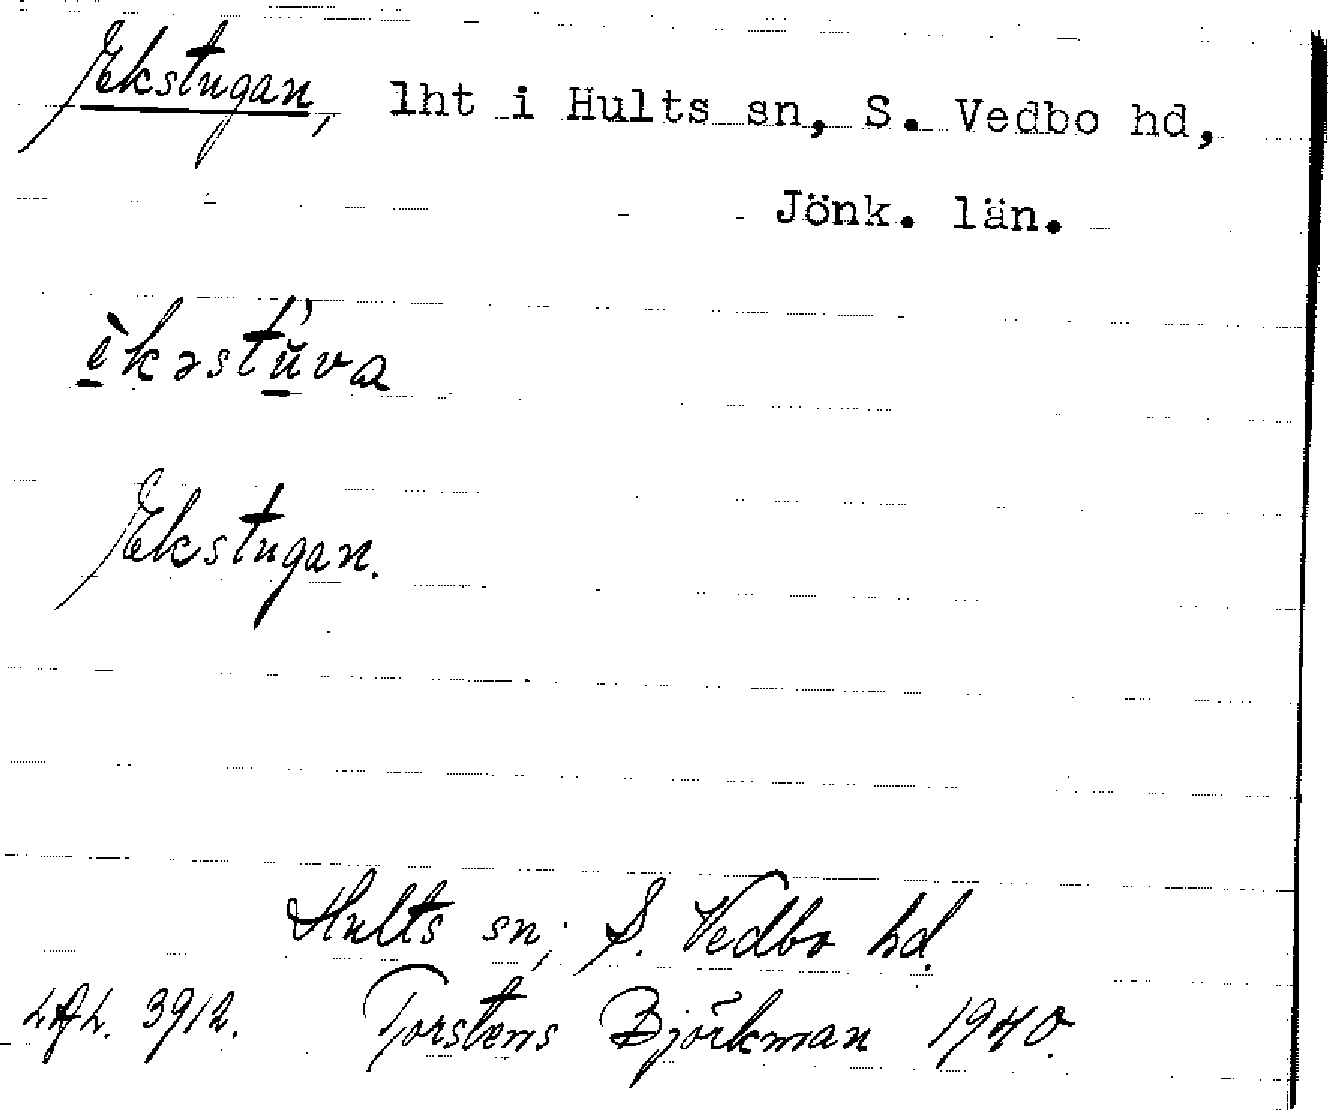 Ekstugan, lht i Hults sn, S. Vedbo hd,
Jönk. län.
è̱kəstu̱̇́va
Ekstugan.
Hults sn; S. Vedbo hd.
3912. Torstens Björkman 1940.